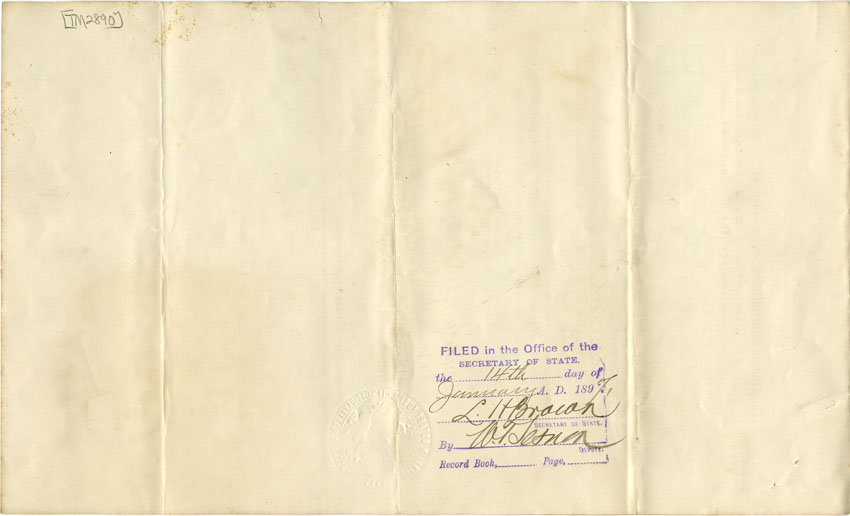 [TM2890]
FILED in the Office of the
SECRETARY OF STATE.
the 14th day of
January A. D. 1897,
L. H Brown
SECRETARY OF STATE.
By W. T.
DEPUTY.
Record Book, Page,